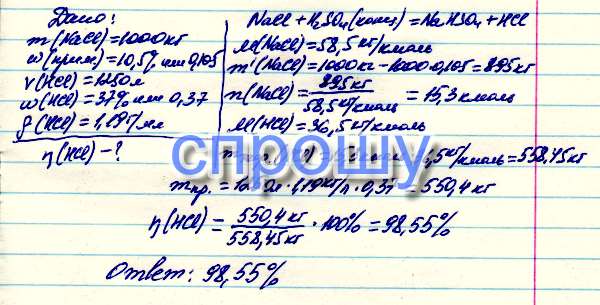 Дано:
m(NaCl)=1000кг
ω(прим.)=10,5% или 0,105
V(HCl)=1250л
ω(HCl)=37% или 0,37
ρ(HCl)=1,19г/мл
η(HCl)-?
NaCl + H₂SO₄(конц)=NaHSO₄+HCl
M(NaCl)=58,5 кг/кмоль
m'(NaCl)=1000кг-1000·0,105=895кг
n(NaCl)= 895кг / 58,5 кг/кмоль = 15,3 кмоль
M(HCl)=36,5 кг/кмоль
спрошу
,5 кг/кмоль=558,45кг
mпр.= л·1,19кг/л·0,37=550,4 кг
η(HCl)= 550,4 кг / 558,45кг ·100%=98,55%
Ответ: 98,55%